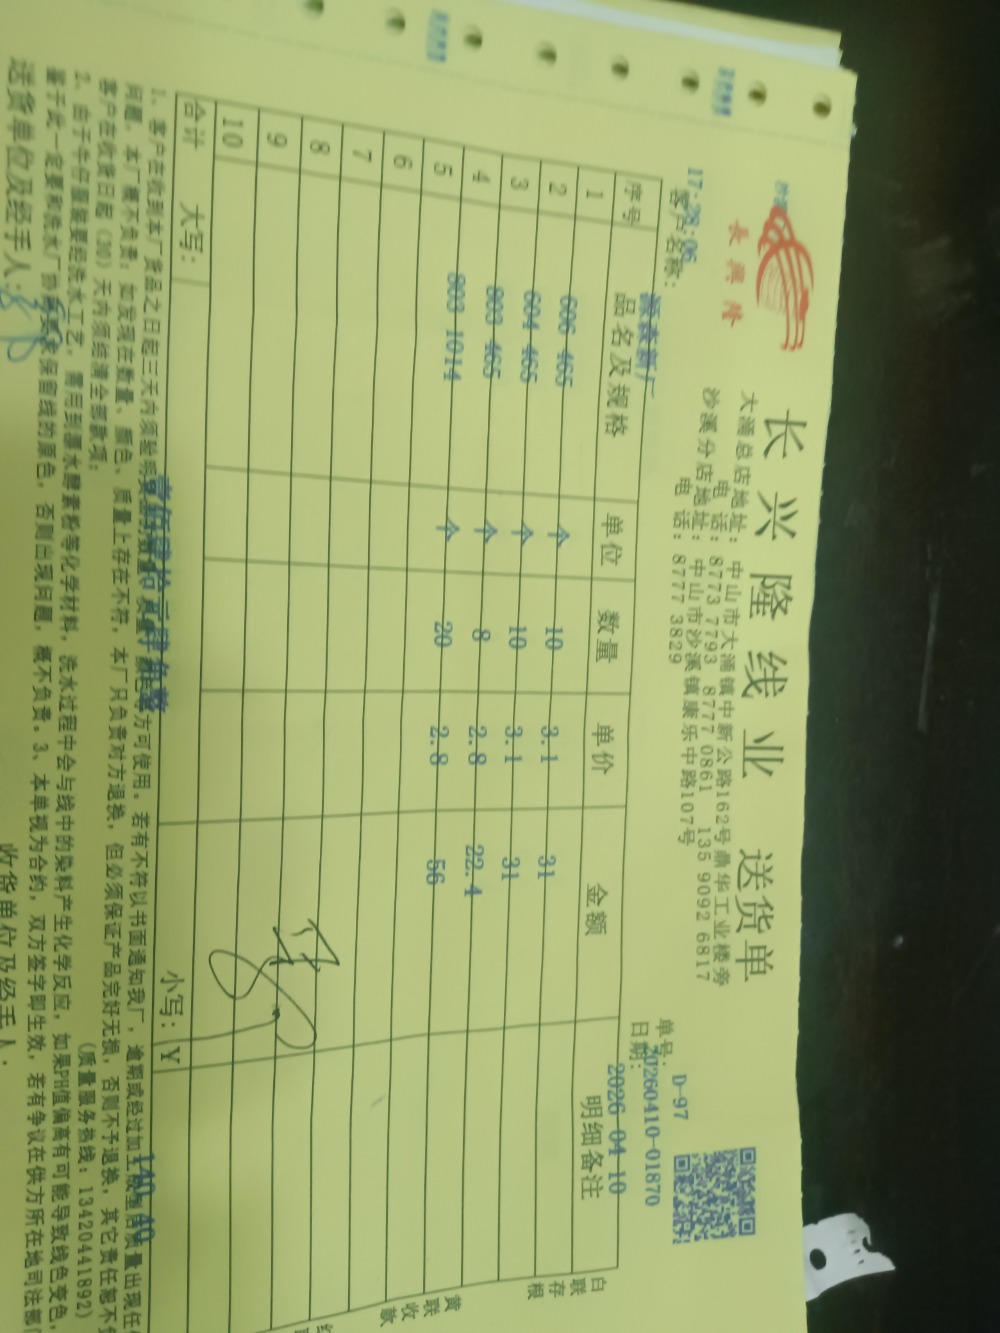 長興隆
长兴隆线业 送货单
大涌总店地址：中山市大涌镇中新公路162号鼎华工业楼旁
电 话：8773 7793 8777 0861 135 9092 6817
沙溪分店地址：中山市沙溪镇康乐中路107号
电 话：8777 3829
D-97
单号：20260410-01870
日期：2026 04 10
17:28:06
客户名称：源森新厂
序号 品名及规格 单位 数量 单价 金额 明细备注
1 606 465 个 10 3.1 31
2 604 465 个 10 3.1 31
3 803 465 个 8 2.8 22.4
4 803 1014 个 20 2.8 56
5
6
7
8
9
10
合计 大写：壹佰肆拾元肆角整 小写：¥ 140.40
白联存根
黄联收款
1、客户在收到本厂货品之日起三天内须验明 方可使用。若有不符以书面通知我厂，逾期或经过加工 质量出现任何
问题，本厂概不负责；如发现在数量、颜色、质量上存在不符，本厂只负责对方退换，但必须保证产品完好无损，否则不予退换，其它责任恕不负
客户在收货日起（30）天内须结清全部款项； （质量服务热线：13420441892）
2、由于牛仔服装要经洗水工艺，需用到漂水酵素粉等化学材料，洗水过程中会与线中的染料产生化学反应，如果PH值偏高有可能导致线色变色，
鉴于此一定要和洗水厂协 保留线的原色，否则出现问题，概不负责。3、本单视为合约，双方签字即生效，若有争议在供方所在地司法部
送货单位及经手人： 收货单位及经手人：